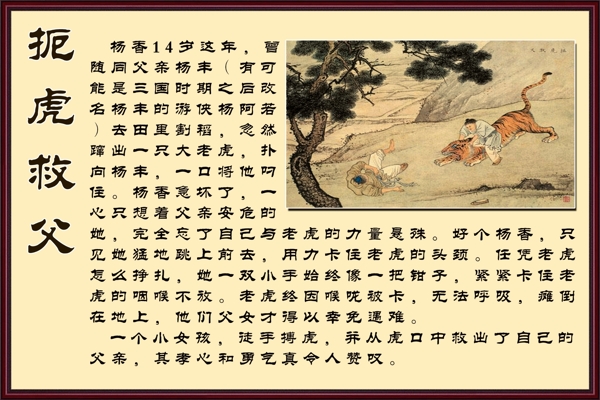 扼虎救父
杨香14岁这年，曾
随同父亲杨丰（有可
能是三国时期之后改
名杨丰的游侠杨阿若
）去田里割稻，忽然
蹿出一只大老虎，扑
向杨丰，一口将他叼
住。杨香急坏了，一
心只想着父亲安危的
她，完全忘了自己与老虎的力量悬殊。好个杨香，只
见她猛地跳上前去，用力卡住老虎的头颈。任凭老虎
怎么挣扎，她一双小手始终像一把钳子，紧紧卡住老
虎的咽喉不放。老虎终因喉咙被卡，无法呼吸，瘫倒
在地上，他们父女才得以幸免遇难。
一个小女孩，徒手搏虎，并从虎口中救出了自己的
父亲，其孝心和勇气真令人赞叹。